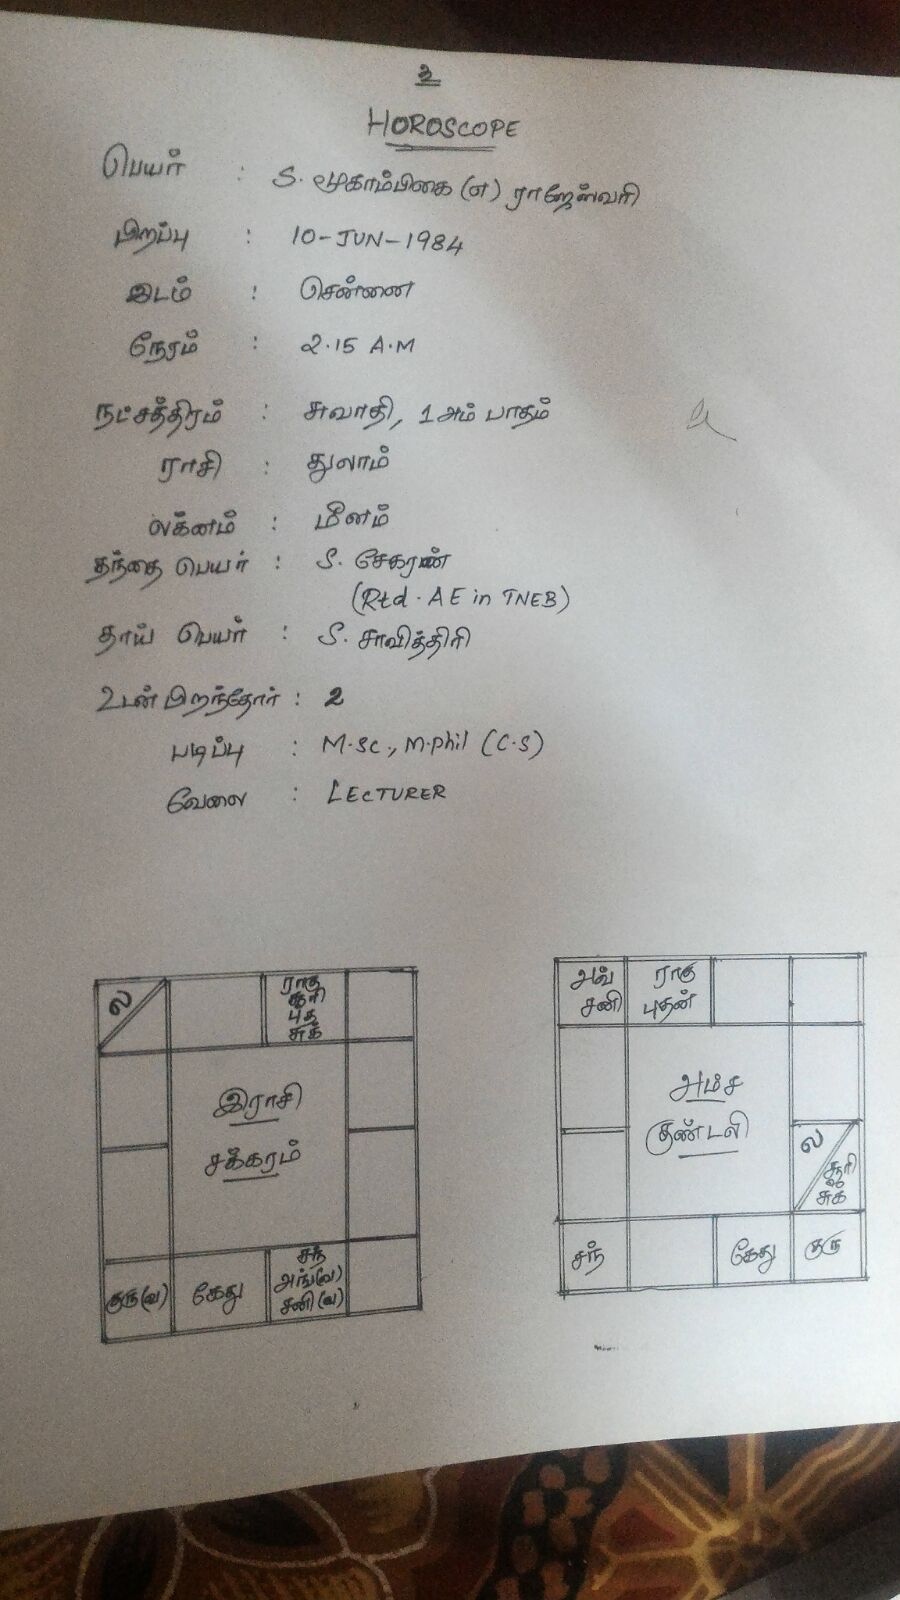 உ
HOROSCOPE
பெயர் : S. மூகாம்பிகை (எ) ராஜேஸ்வரி
பிறப்பு : 10-JUN-1984
இடம் : சென்னை
நேரம் : 2.15 A.M
நட்சத்திரம் : சுவாதி, 1அம் பாதம்
ராசி : துலாம்
லக்னம் : மீனம்
தந்தை பெயர் : S. சேகரன்
(Rtd. AE in TNEB)
தாய் பெயர் : S. சாவித்திரி
உடன் பிறந்தோர் : 2
படிப்பு : M.Sc., M.Phil (C.S)
வேலை : LECTURER
ல
ராகு
சூரி
புத
சுக்
இராசி
சக்கரம்
குரு(வ)
கேது
சந்
அங்(வ)
சனி(வ)
அங்
சனி
ராகு
புதன்
அம்ச
குண்டலி
ல
சூரி
சுக்
சந்
கேது
குரு